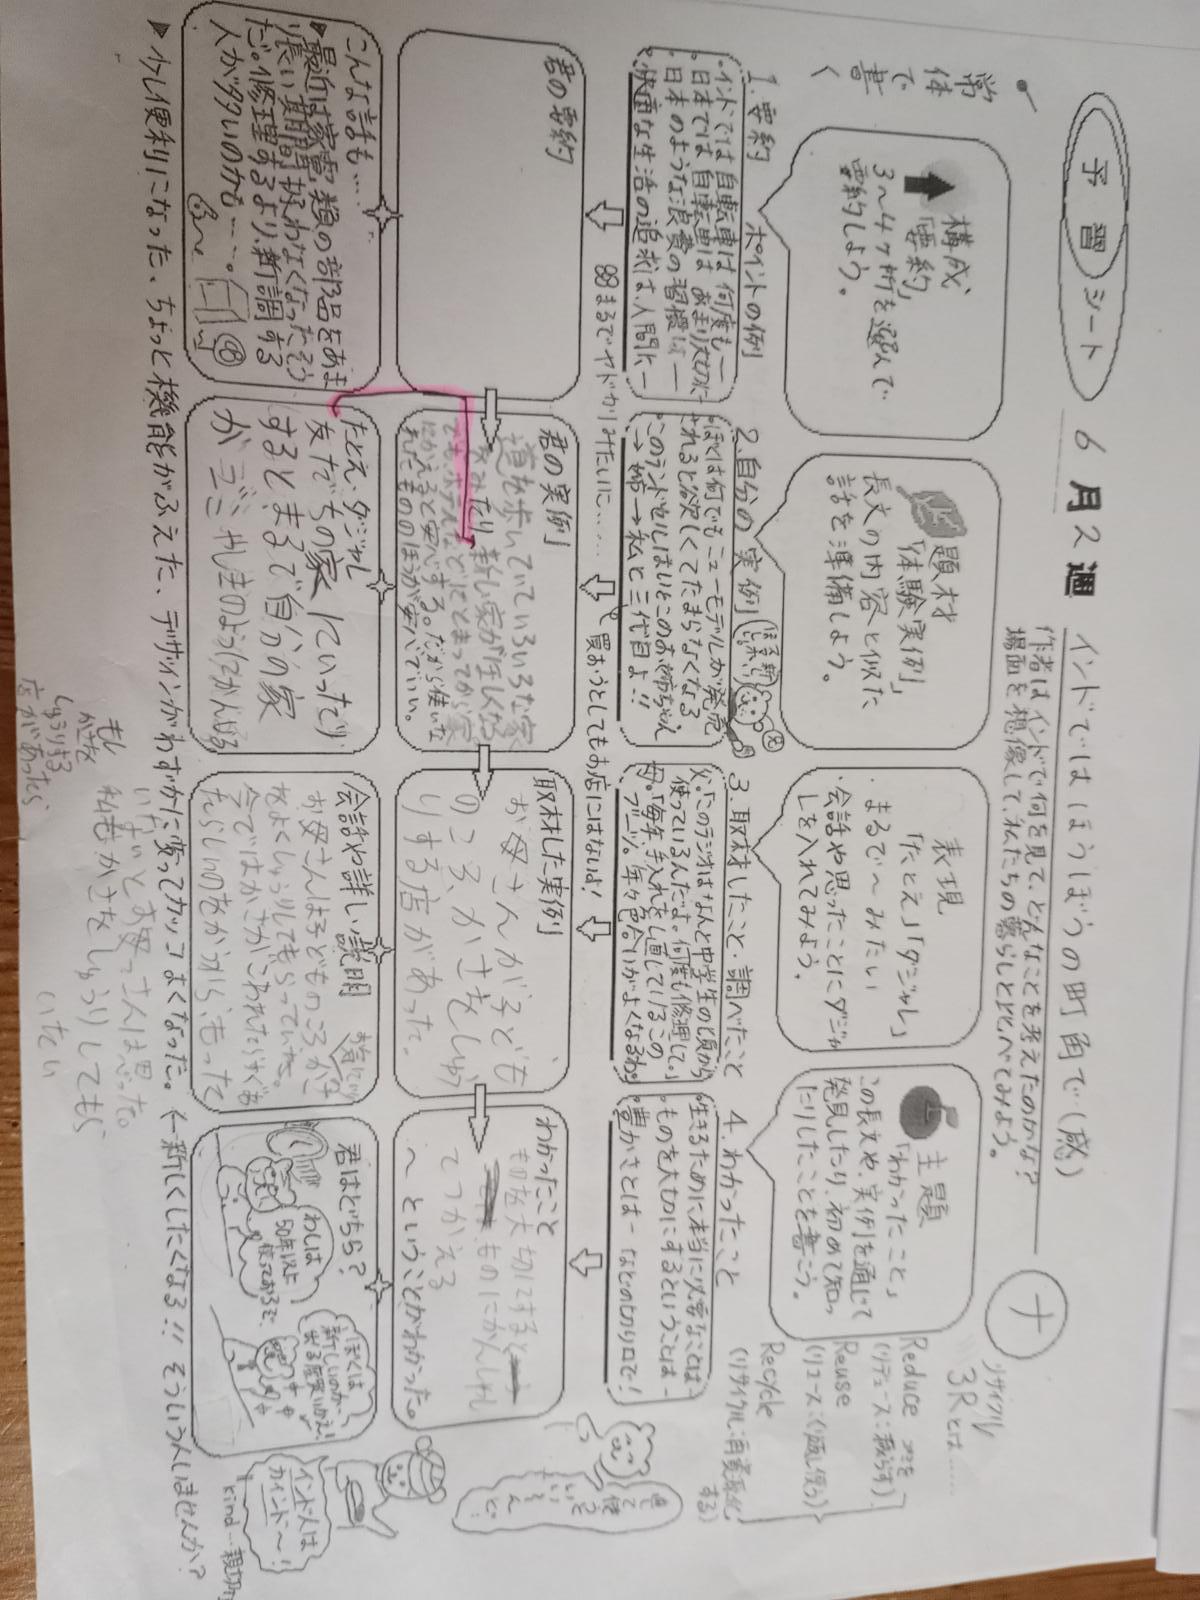 予習シート
6月2週
インドではほうぼうの町角で(感)
作者はインドで何を見て、どんなことを考えたのかな?
場面を想像して、私たちの暮らしと比べてみよう。
ナ
常体で書く
構成
「要約」
3〜4ヶ所を選んで
要約しよう。
題材
「体験実例」
長文の内容と似た
話を準備しよう。
表現
「たとえ」「ダジャレ」
まるで〜みたい
会話や思ったことにダジャ
レを入れてみよう。
主題
「わかったこと」
この長文や、実例を通じて
発見したり、初めて知っ
たりしたことを書こう。
リサイクル
3Rとは……
Reduce ゴミを
(リデュース:減らす)
Reuse
(リユース:くり返し使う)
Recycle
(リサイクル:再資源化
する)
1. 要約 ポイントの例
・インドでは自転車は何度も―
・日本では自転車はあまり大切に
・日本のような浪費の習慣は―
・快適な生活の追求は、人間に―
2. 自分の実例
・ぼくは何でもニューモデルが発売
されると欲しくてたまらなくなる
・このランドセルはいとこのお姉ちゃん
→姉→私と三代目よ!!
3. 取材したこと・調べたこと
父「このラジオはなんと中学生の頃から
使っているんだよ。何度も修理して。」
母「毎年手入れをし直しているこの
ブーツ。年々色合いがよくなるわ。
4. わかったこと
・生きるために本当に必要なことは―
・ものを大切にするということは―
・豊かさとは― などの切り口で!
まるでヤドカリみたいに……
買おうとしてもお店にはないよ!
君の要約
君の実例
道を歩いていていろいろな家
をみたり、新しい家がほしくなる
でも、ホテルなどにとまってから家
にかえると安心する。だから使いな
れたもののほうが安心でいい。
取材した実例
お母さんが子ども
のころ、かさをしゅう
りする店があった。
わかったこと
ものを大切にすると
ものにかんしゃし
てつかえる
〜ということがわかった。
こんな話も…
▶最近は家電類の部品をあま
り長い期間扱わなくなったそう
だ。修理するより、新調する
人が多いのかも……。
たとえ・ダジャレ
友だちの家にいったり
するとまるで自分の家
がゴミやしきのようにかんじる
会話や詳しい説明
お母さんは子どものころかさ
をよくしゅうりしてもらっていた。
今ではかさがこわれたらすぐあ
たらしいのをかうから、もった
いないとお母さんは思った。
私もかさをしゅうりしてもら
いたい
もし
かさを
しゅうりする
店があったら
君はどちら?
わしは
50年以上
使っておるぞ。
ぼくは
新しいのが
出る度買いかえ!
インド人は
カインド〜!
kind…親切な
▶少し便利になった、ちょっと機能がふえた、デザインがわずかに変ってカッコよくなった。←新しくしたくなる!!そういう人いませんか?